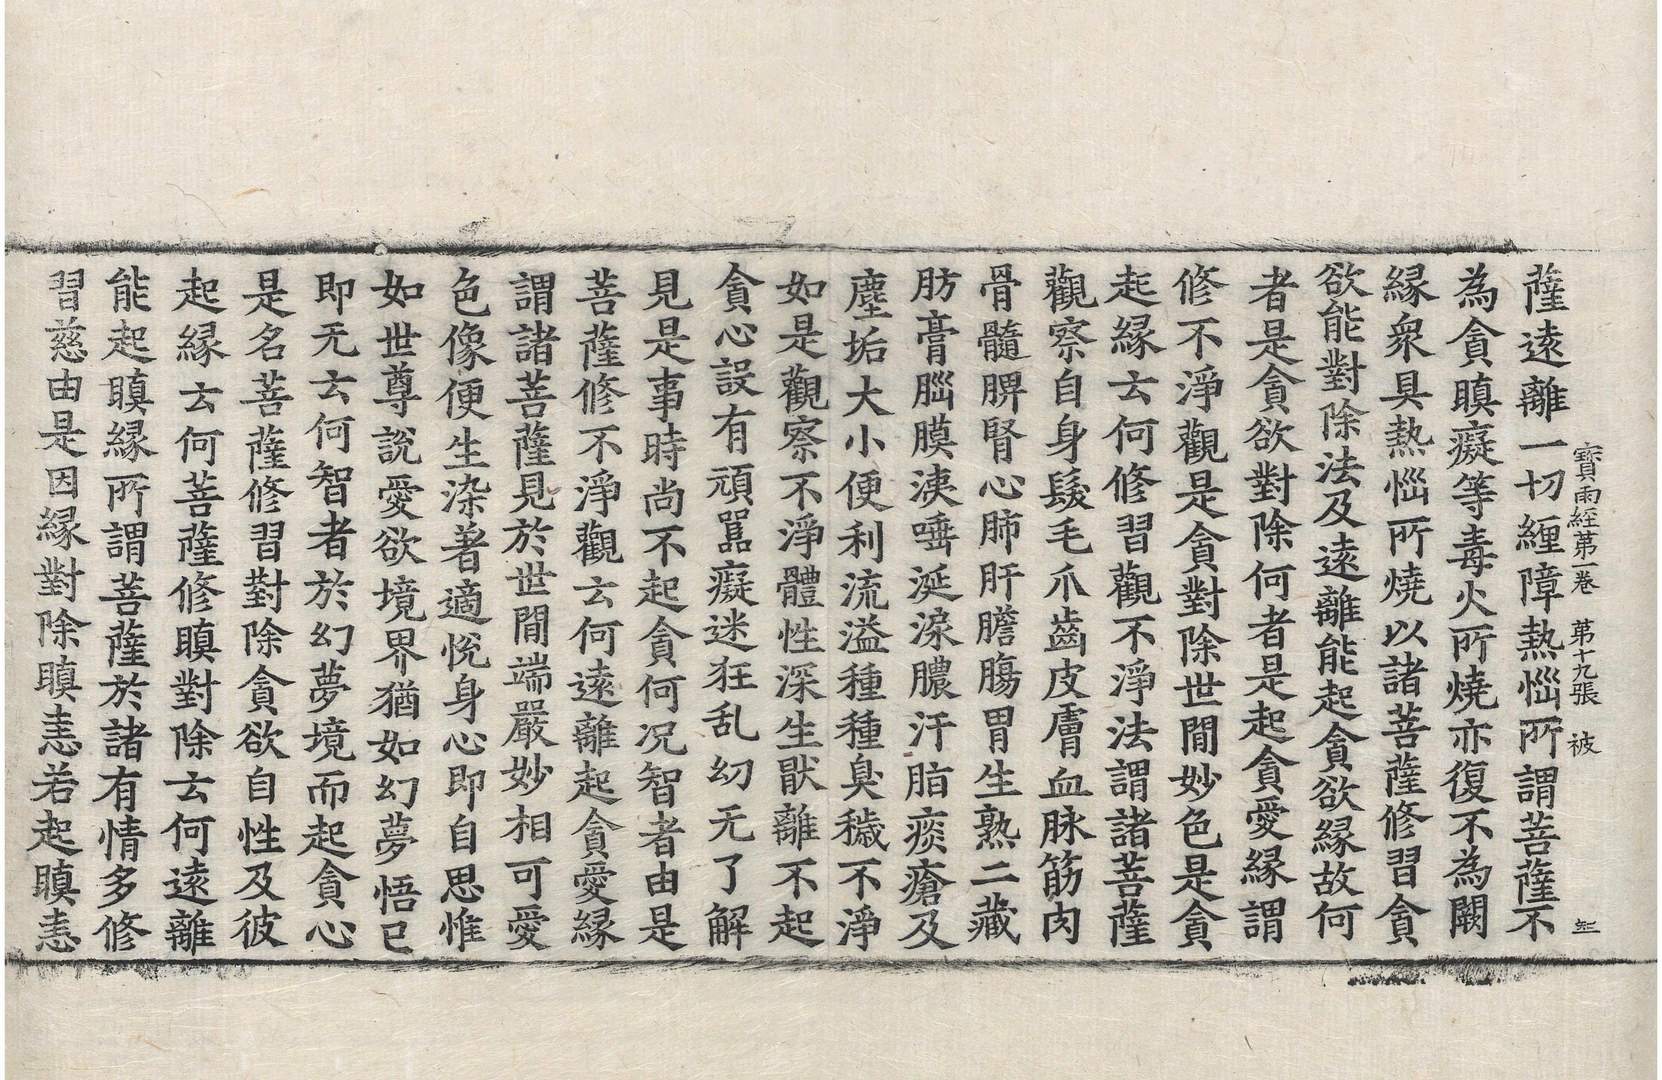 寶雨經第一卷　第十九張　被
薩遠離一切纏障熱惱所謂菩薩不
為貪瞋癡等毒火所燒亦復不為闕
緣衆具熱惱所燒以諸菩薩修習貪
欲能對除法及遠離能起貪欲緣故何
者是貪欲對除何者是起貪愛緣謂
修不淨觀是貪對除世間妙色是貪
起緣云何修習觀不淨法謂諸菩薩
觀察自身髮毛爪齒皮膚血脉筋肉
骨髓脾腎心肺肝膽腸胃生熟二藏
肪膏腦膜洟唾涎淚膿汗脂痰瘡及
塵垢大小便利流溢種種臭穢不淨
如是觀察不淨體性深生猒離不起
貪心設有頑嚚癡迷狂乱幼无了解
見是事時尚不起貪何况智者由是
菩薩修不淨觀云何遠離起貪愛緣
謂諸菩薩見於世間端嚴妙相可愛
色像便生染著適悅身心即自思惟
如世尊說愛欲境界猶如幻夢悟已
即无云何智者於幻夢境而起貪心
是名菩薩修習對除貪欲自性及彼
起緣云何菩薩修瞋對除云何遠離
能起瞋緣所謂菩薩於諸有情多修
習慈由是因緣對除瞋恚若起瞋恚